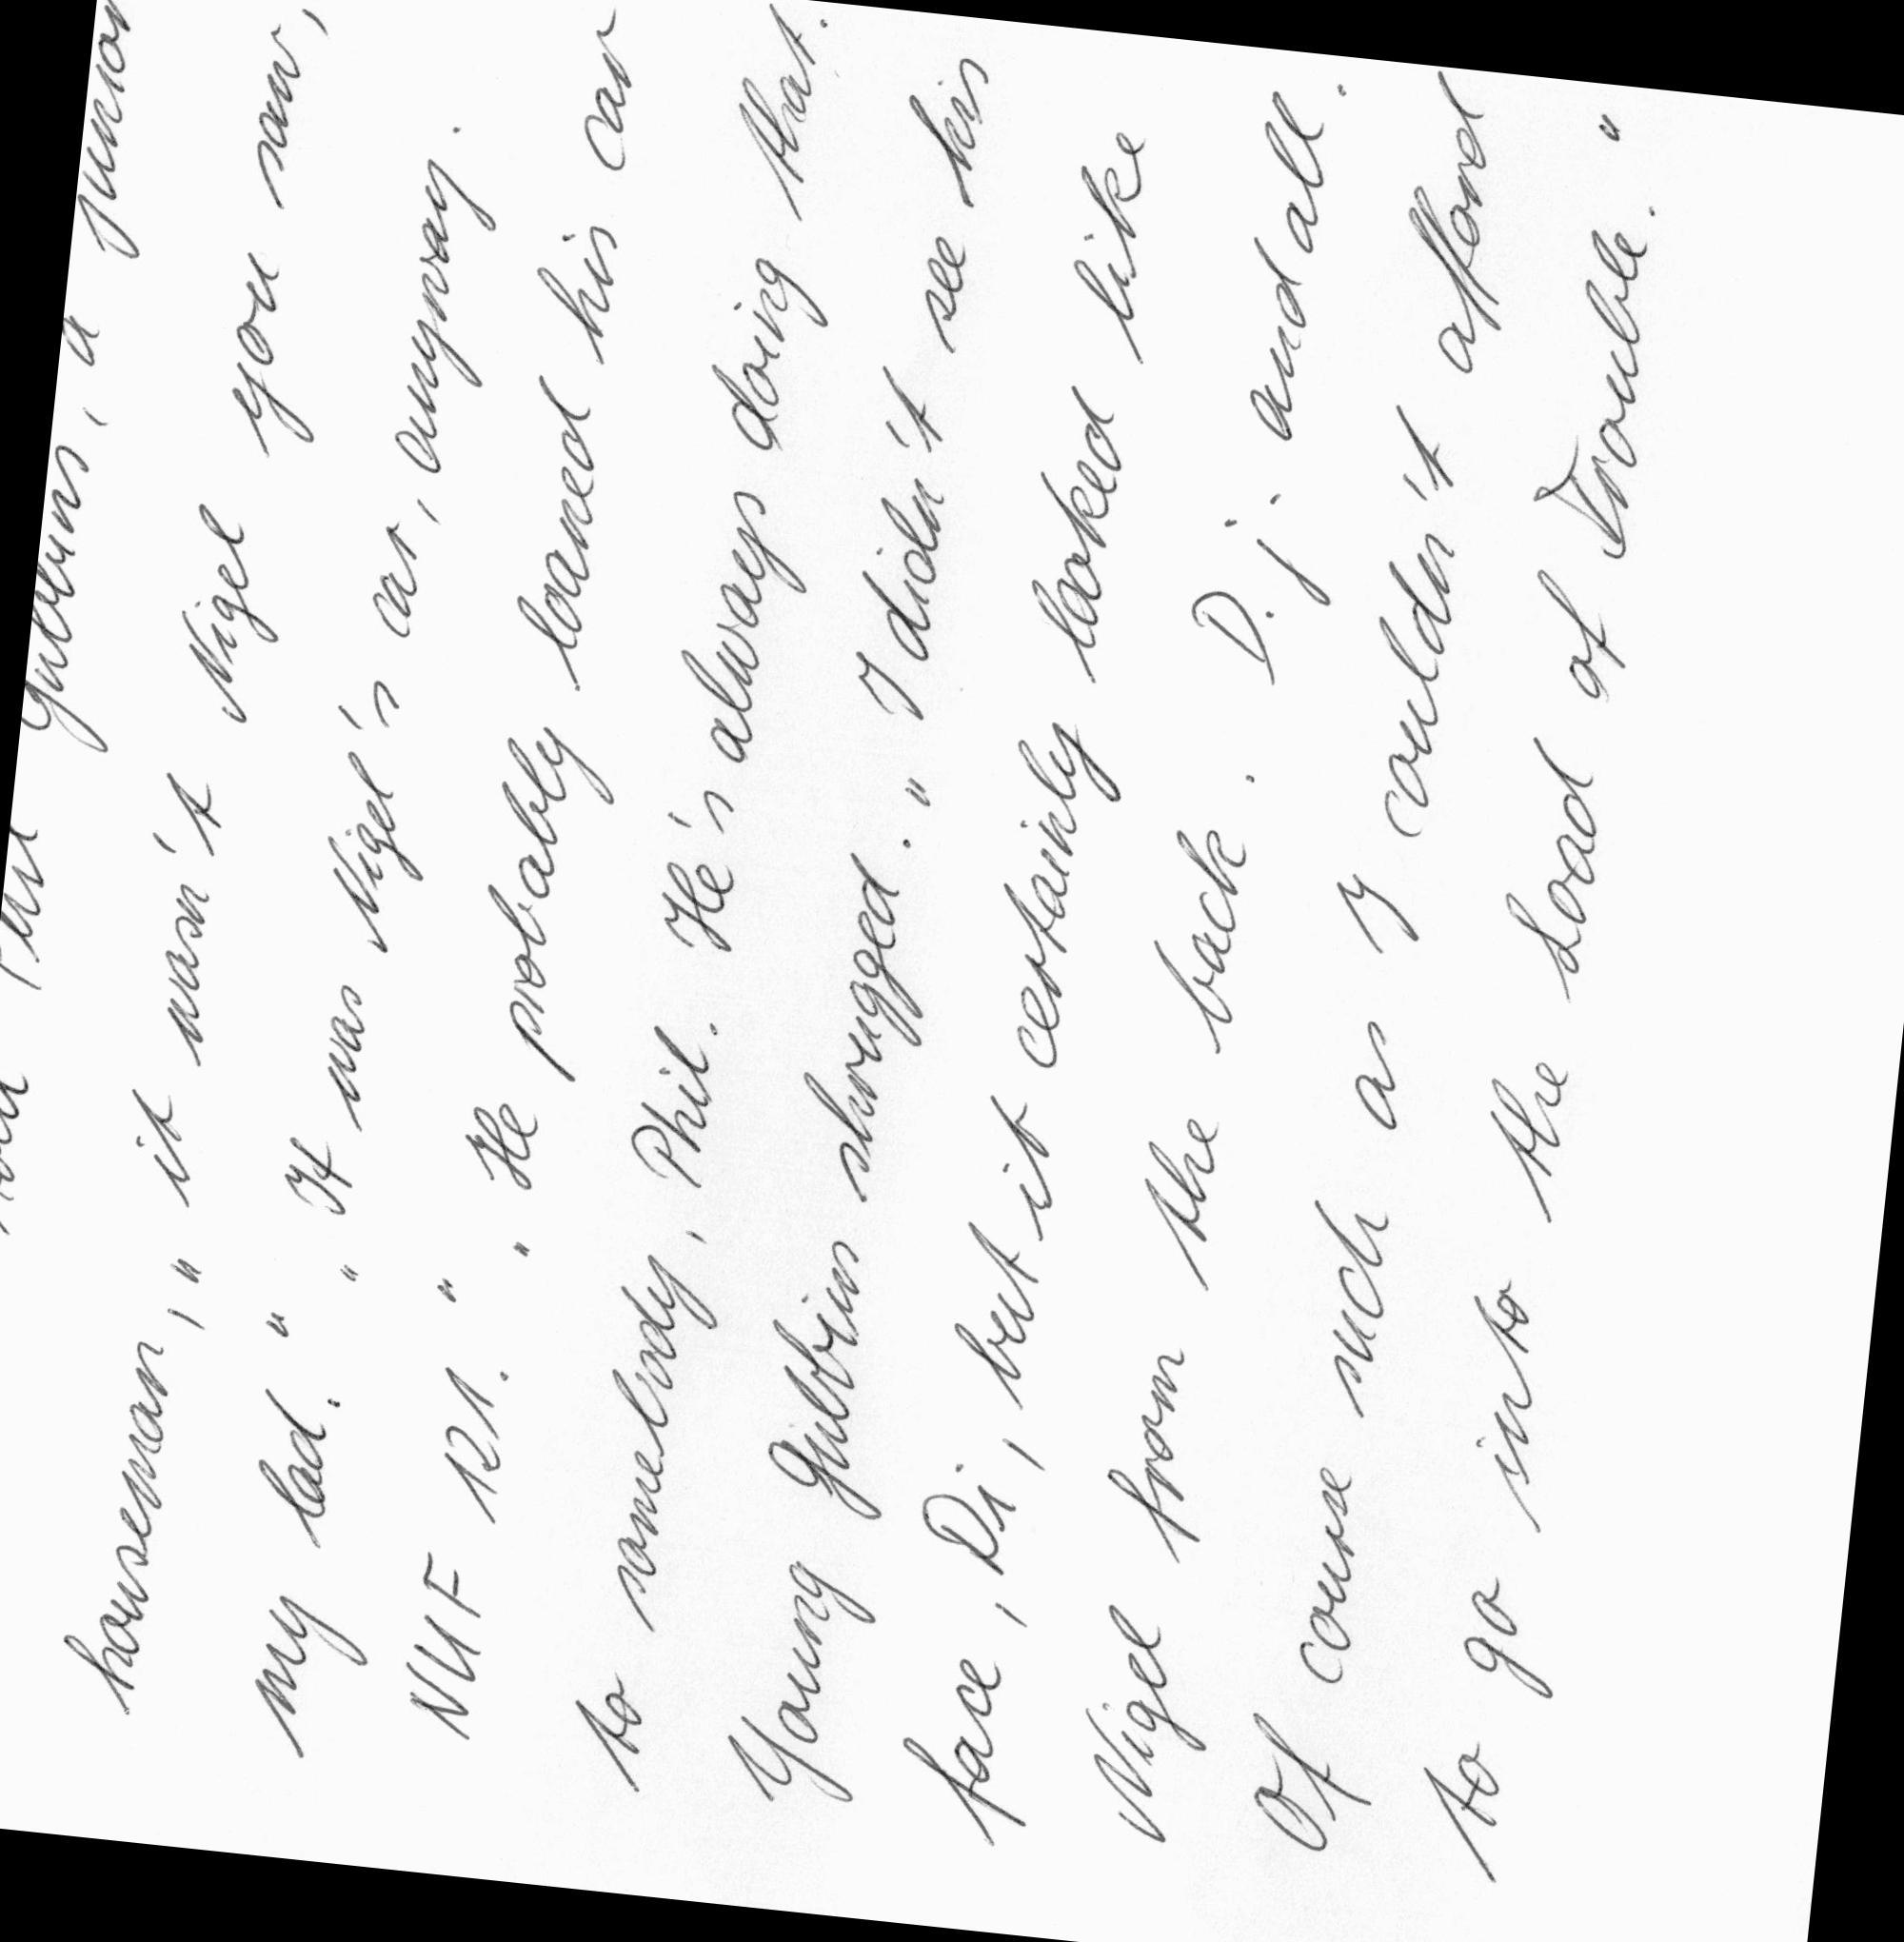 Phil Gubbins, a junior
houseman, "it wasn't Nigel you saw,
my lad." "It was Nigel's car, anyway.
NUF 121." "He probably loaned his car
to somebody, Phil. He's always doing that.
Young Gubbins shrugged. "I didn't see his
face, Di, but it certainly looked like
Nigel from the back. D.j. and all.
Of course such as I couldn't afford
to go into the Load of Trouble."